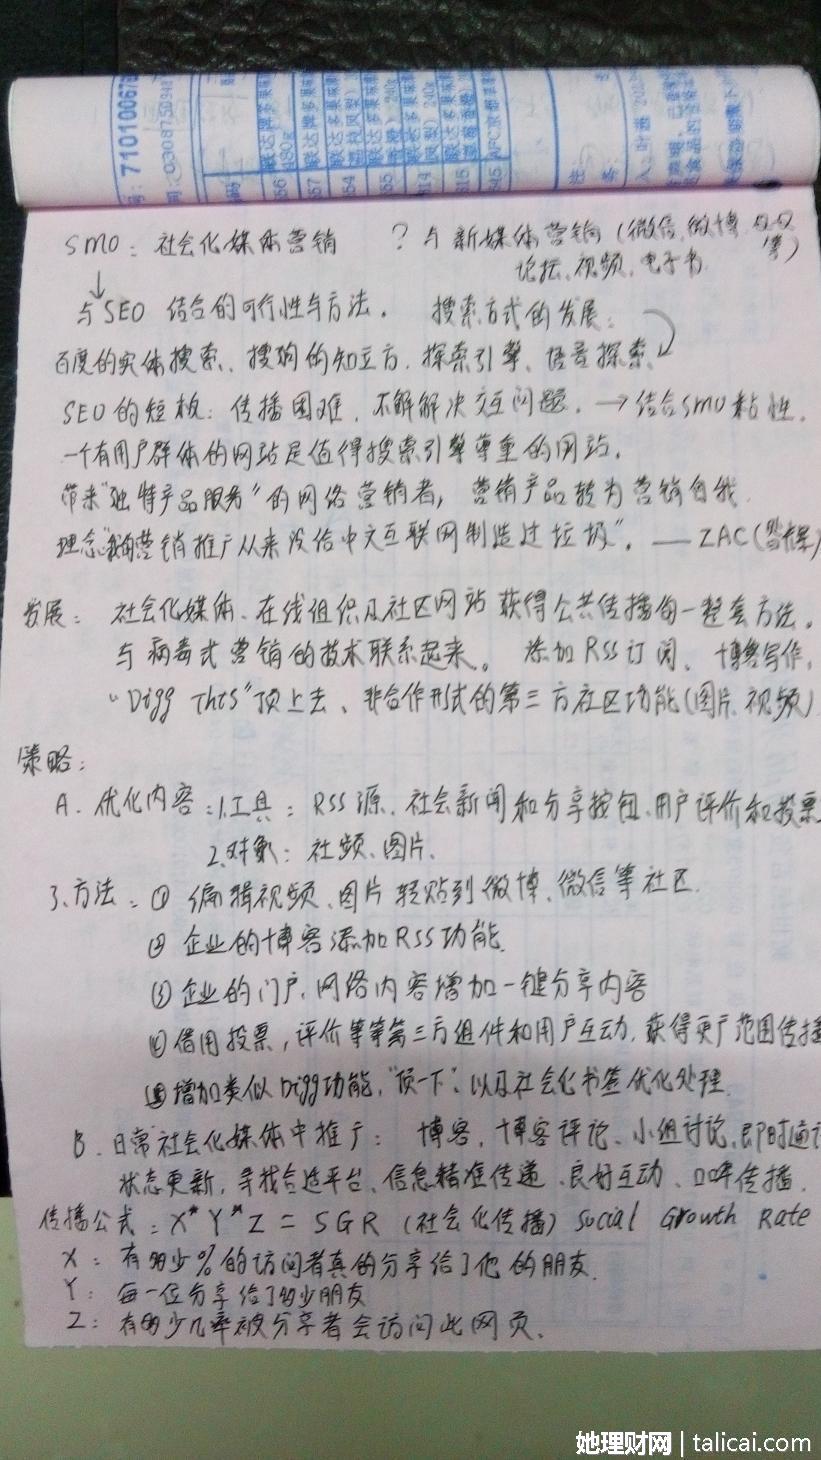 710100678
0308750948
联达牌多果味
480g
联达多果味
联达多果味
联达多果味
240g
联达多果味
240g
联达多果味
AFC京都
注:
SMO: 社会化媒体营销 ? 与新媒体营销(微信、微博、QQ等)
论坛、视频、电子书.
与SEO 结合的可行性与方法. 搜索方式的发展:
百度的实体搜索、搜狗的知立方、探索引擎、语音探索
SEO的短板: 传播困难, 不解解决交互问题. → 结合SMO粘性.
一个有用户群体的网站是值得搜索引擎尊重的网站.
带来"独特产品服务"的网络营销者, 营销产品转为营销自我.
理念"我的营销推广从来没给中文互联网制造过垃圾". —— ZAC(昝辉)
发展: 社会化媒体、在线组织及社区网站获得公共传播的一整套方法.
与病毒式营销的技术联系起来. 添加RSS订阅、博客写作,
"Digg This"顶上去、非合作形式的第三方社区功能(图片、视频)
策略:
A. 优化内容: 1.工具: RSS源、社会新闻和分享按钮、用户评价和投票
2.对象: 社频、图片.
3.方法: ① 编辑视频、图片转贴到微博、微信等社区.
② 企业的博客添加RSS功能.
③ 企业的门户、网络内容增加一键分享内容
④ 借用投票, 评价等等第三方组件和用户互动, 获得更广范围传播
⑤ 增加类似Digg功能, "顶一下", 以及社会化书签优化处理.
B. 日常社会化媒体中推广: 博客, 博客评论、小组讨论、即时通讯
状态更新, 寻找合适平台、信息精准传递、良好互动、口碑传播.
传播公式: X*Y*Z = SGR (社会化传播) Social Growth Rate
X: 有多少%的访问者真的分享给了他的朋友.
Y: 每一位分享给了多少朋友
Z: 有多少几率被分享者会访问此网页.
她理财网 | talicai.com